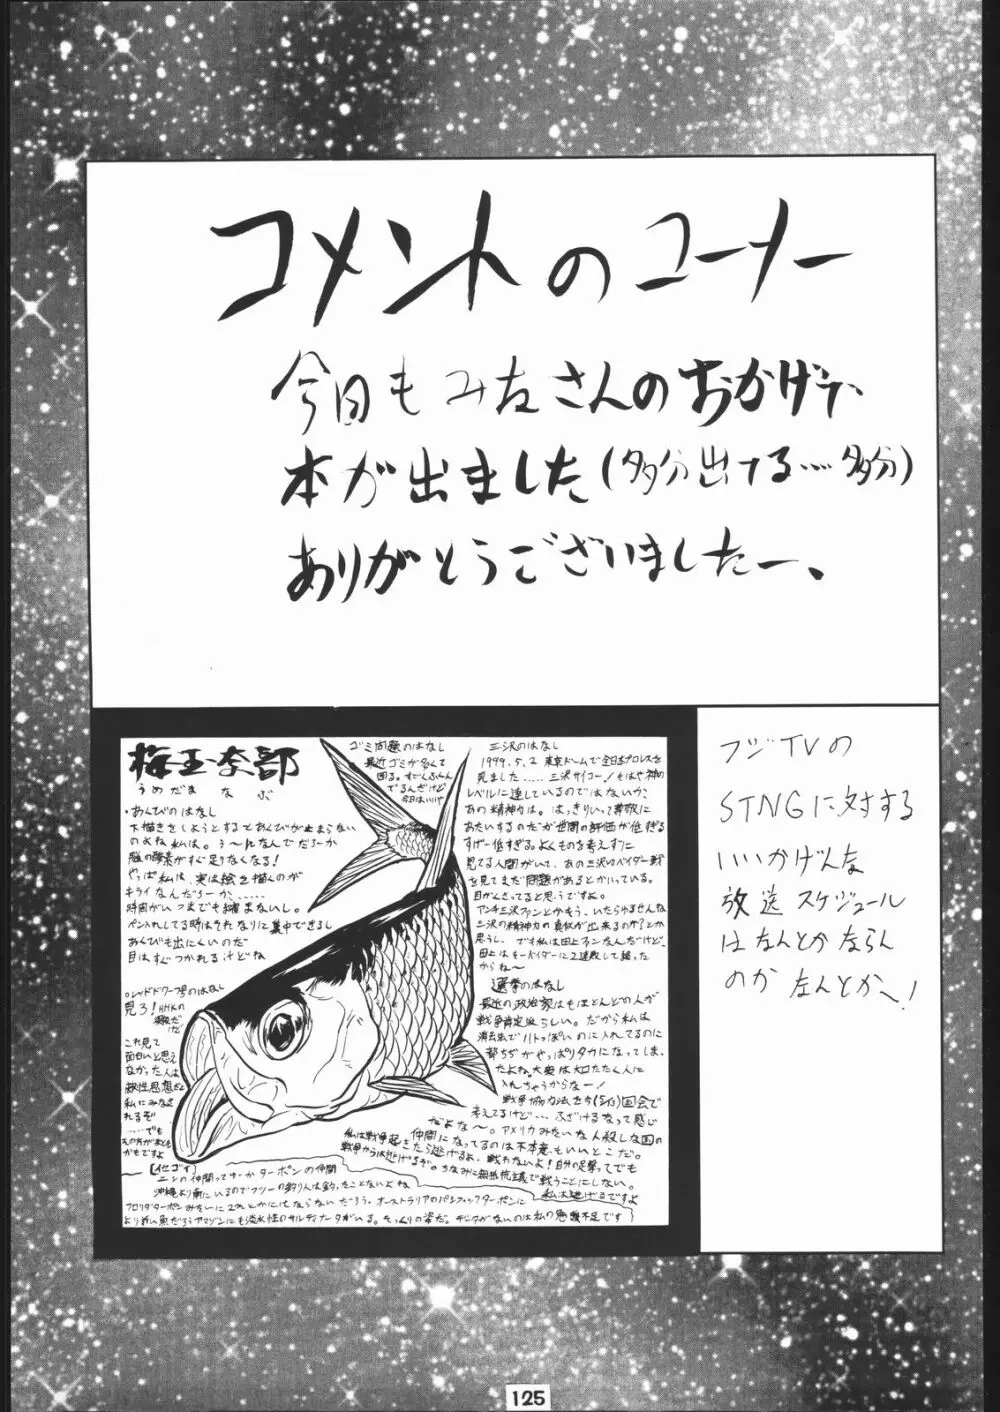 コメントのコーナー
今日もみなさんのおかげで、
本が出ました(多分出てる……多分)
ありがとうございましたー、
梅玉奈部
うめだまなぶ
・あくびのはなし
下描きをしようとするとあくびが止まらない
のよね私は。う〜んなんでだろーか
脳の酸素がすぐ足りなくなる!
やっぱ私は、実は絵を描くのが
キライなんだろーか、……
時間がいつまでも縮まないし。
ペン入れしてる時はそれなりに集中できるし
あくびも出にくいのだ
目はすぐつかれるけどね
○レッドドワーフ号のはなし
見ろ!NHKの
深夜だ
けど
これ見て
面白いと思え
なかった人は
敵性思想だと
私にみなさ
れるぞ
……でも
その方が本とも
かもですよ
ゴミ問題のはなし
最近ゴミが多くて
困る。すごくふくん
でるんだけど
今日はいいや
三沢のはなし
1999.5.2 東京ドームで全日本プロレスを
見ました……三沢サイコー!もはや神の
レベルに達しているのではないか、
あの精神力は。はっきりいって尊敬に
あたいするのだが世間の評価が低すぎる
すげー低すぎる。よくものを考えずに
見てる人間がいて、あの三沢vsベイダー戦
を見てまだ問題があるとかいっている。
目がくさってると思うですよ。
アンチ三沢ファンとかもう、いたらゆるせんな
三沢の精神力の真似が出来るのか?とか
思うし。でも私は田上ファンなんだけど、
田上はそーベイダーに2連敗して終った
からね〜
選挙のはなし
最近の政治家はもほとんどの人が
戦争肯定派らしい。だから私は
消去法でハトっぽいのに入れてるのに
都ちぢがやっぱりタカになってしま、
たよね。大衆は大口たたく人に
入れちゃうからなー!
戦争協力法を今(5/13)国会で
考えてるけど…ふざけるなって感じ
だよな〜。アメリカみたいな人殺しな国の
仲間になってるのは不本意、もいいとこだ。
私は戦争起きたら逃げるよ、戦わないよ!自分の足撃ってでも
戦争からは逃げるぞ。ちなみに無抵抗主義で戦うことにしない。
私は逃げるですよ
[イセゴイ]
ニシンの仲間ってゆーかターポンの仲間
沖縄より南にいるのでフツーの釣り人は釣ったことないよね
フロリダターポンみたいに2mとかにはならないだろう。オーストラリアのパシフィックターポンに
より近い魚だろうアマゾンにも淡水性のサルディナータがいる。そっくりの姿だ。データがないのは私の勉強不足です
フジTVの
STNGに対する
いいかげんな
放送スケジュール
はなんとかならん
のか なんとかへ!
125